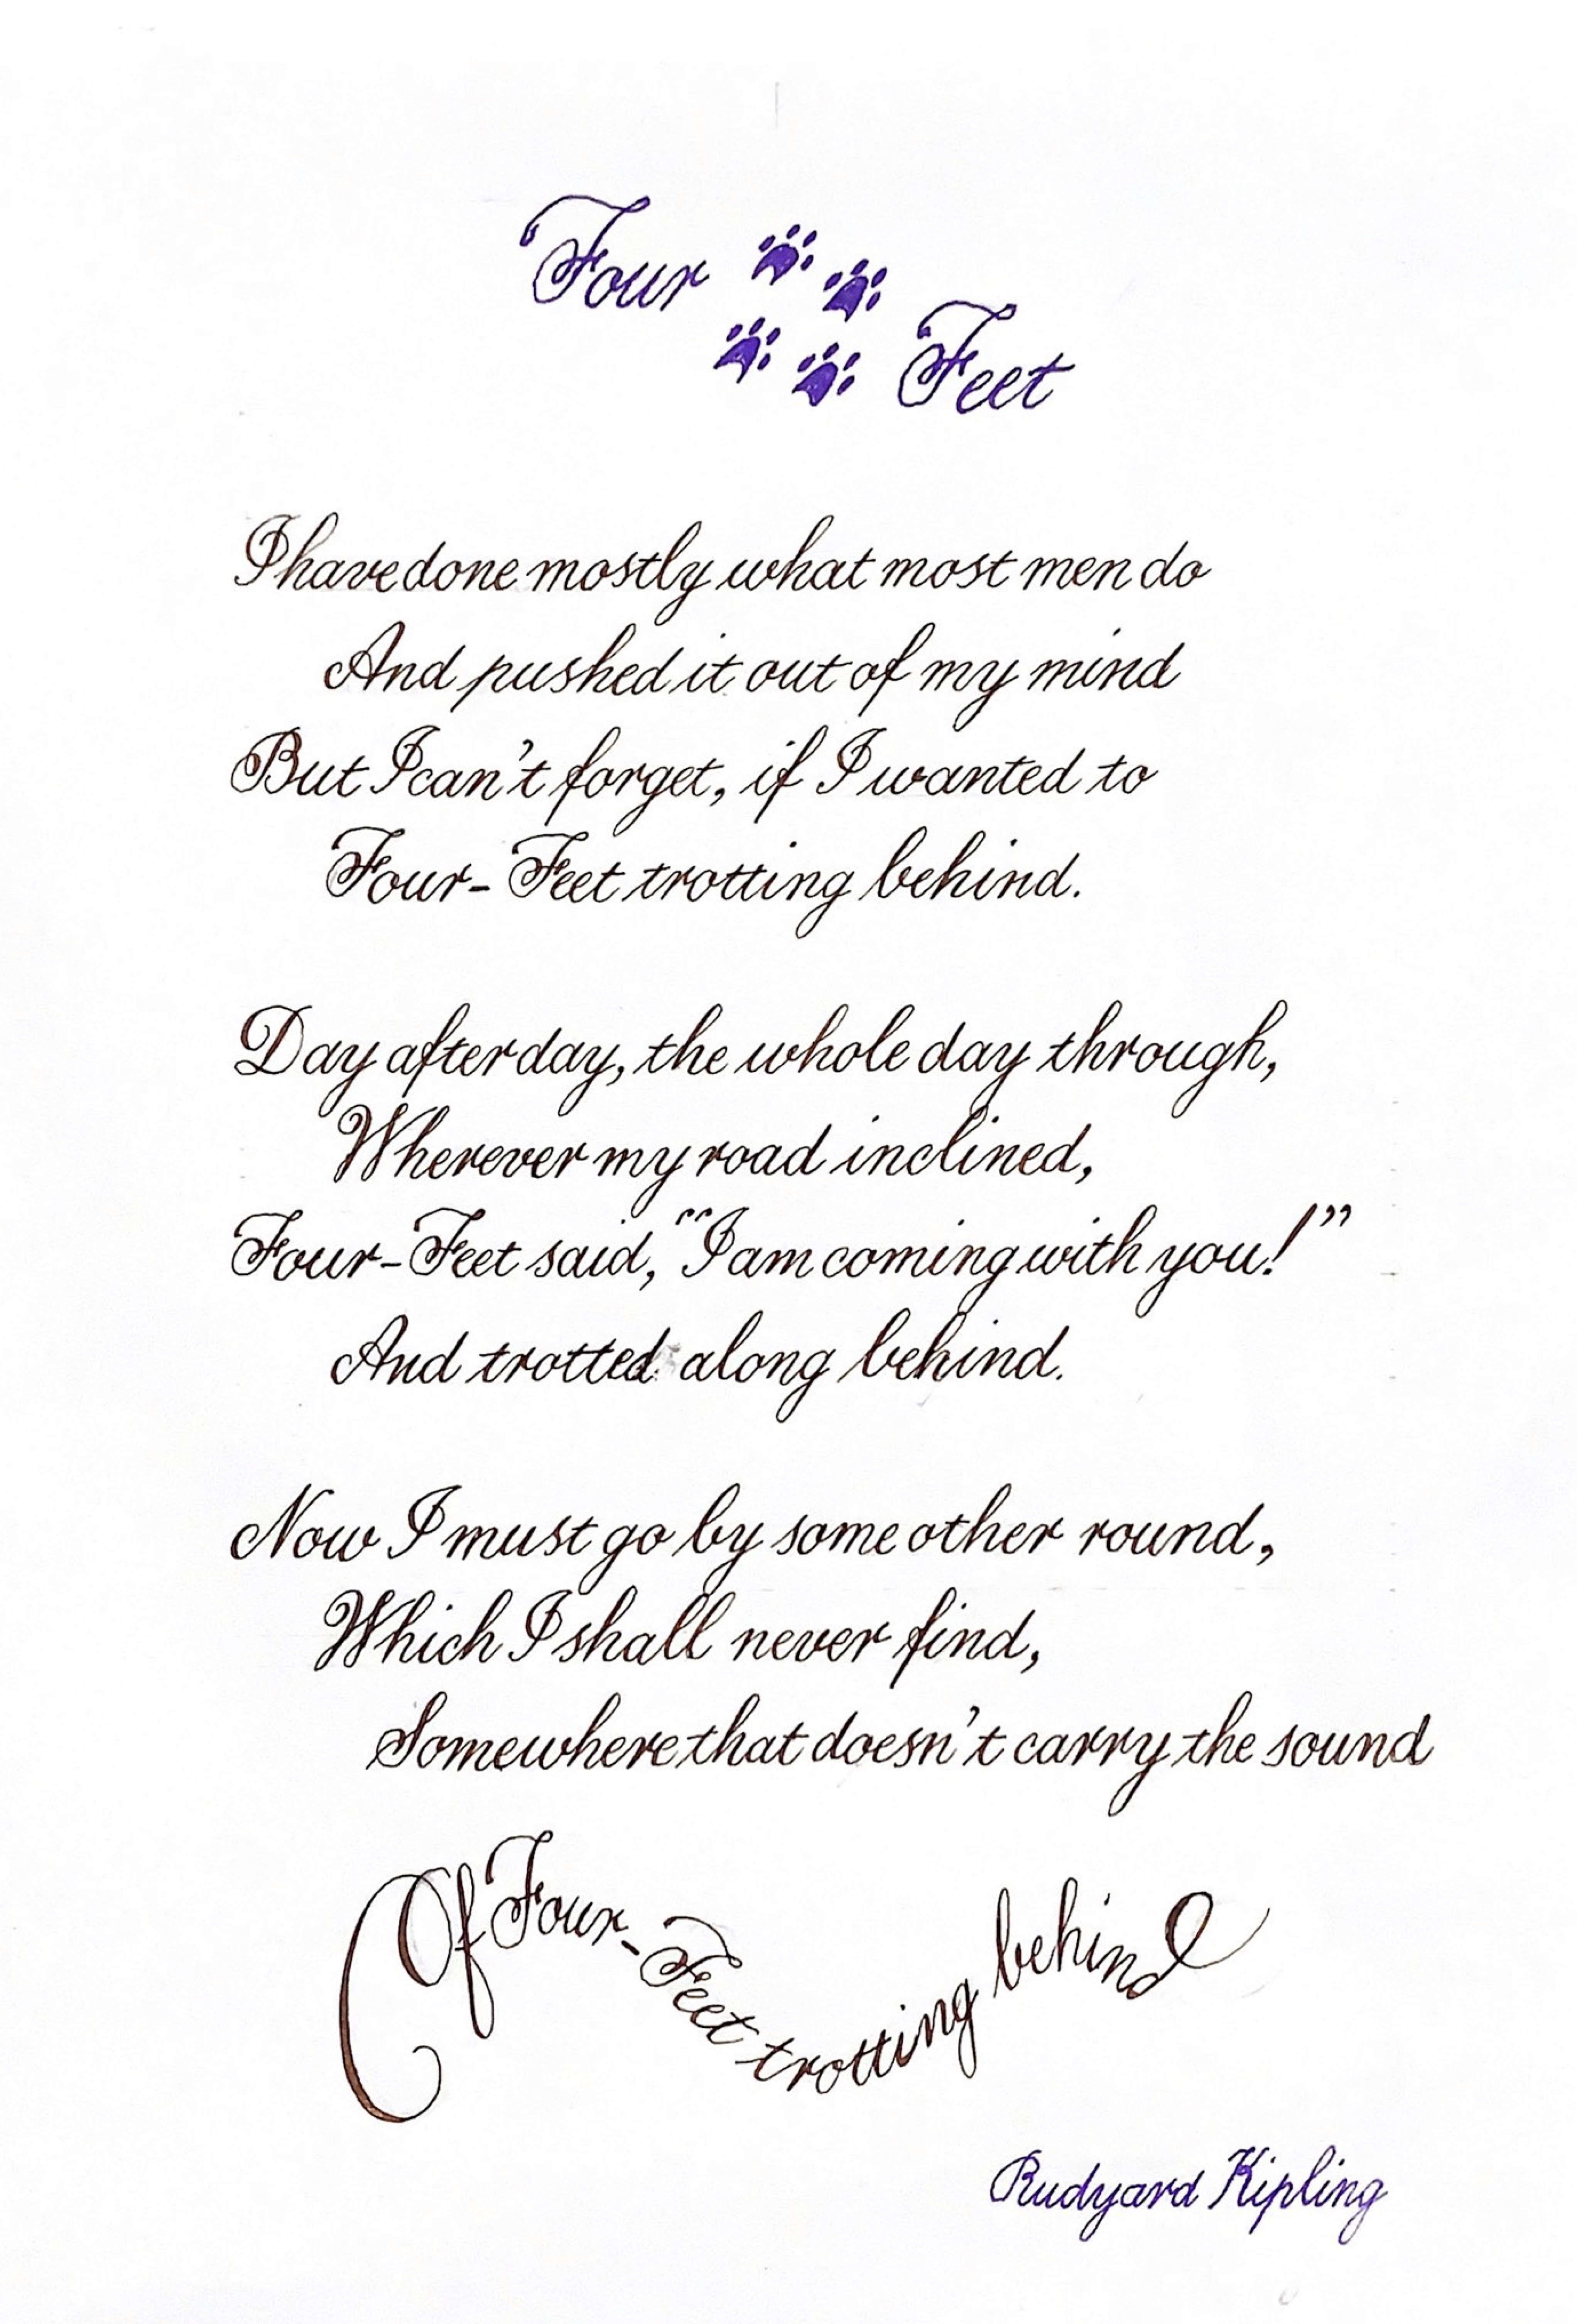 Four
Feet
I have done mostly what most men do
And pushed it out of my mind
But I can't forget, if I wanted to
Four-Feet trotting behind.
Day after day, the whole day through,
Wherever my road inclined,
Four-Feet said, "I am coming with you!"
And trotted along behind.
Now I must go by some other round,
Which I shall never find,
Somewhere that doesn't carry the sound
Of Four-Feet trotting behind
Rudyard Kipling